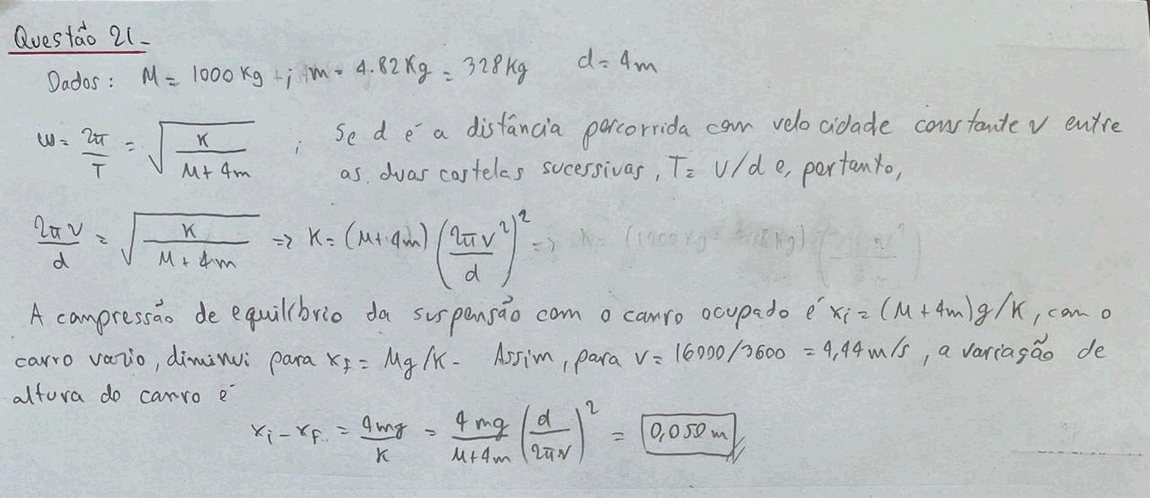 Questão 21-
Dados: M = 1000 Kg + ; 4m = 4.82Kg = 328Kg d = 4m
w = 2π/T = √(K/(M+4m)) ; Se d é a distância percorrida com velocidade constante v entre
as duas costelas sucessivas, T = v/d e, portanto,
2πv/d = √(K/(M+4m)) => K = (M+4m) (2πv²/d)² =>
A compressão de equilíbrio da suspensão com o carro ocupado é xi = (M+4m)g/K, com o
carro vazio, diminui para xf = Mg/K. Assim, para v = 16000/3600 = 4,44 m/s, a variação de
altura do carro é
xi - xf = 4mg/K = 4mg/(M+4m) (d/2πv)² = 0,050 m